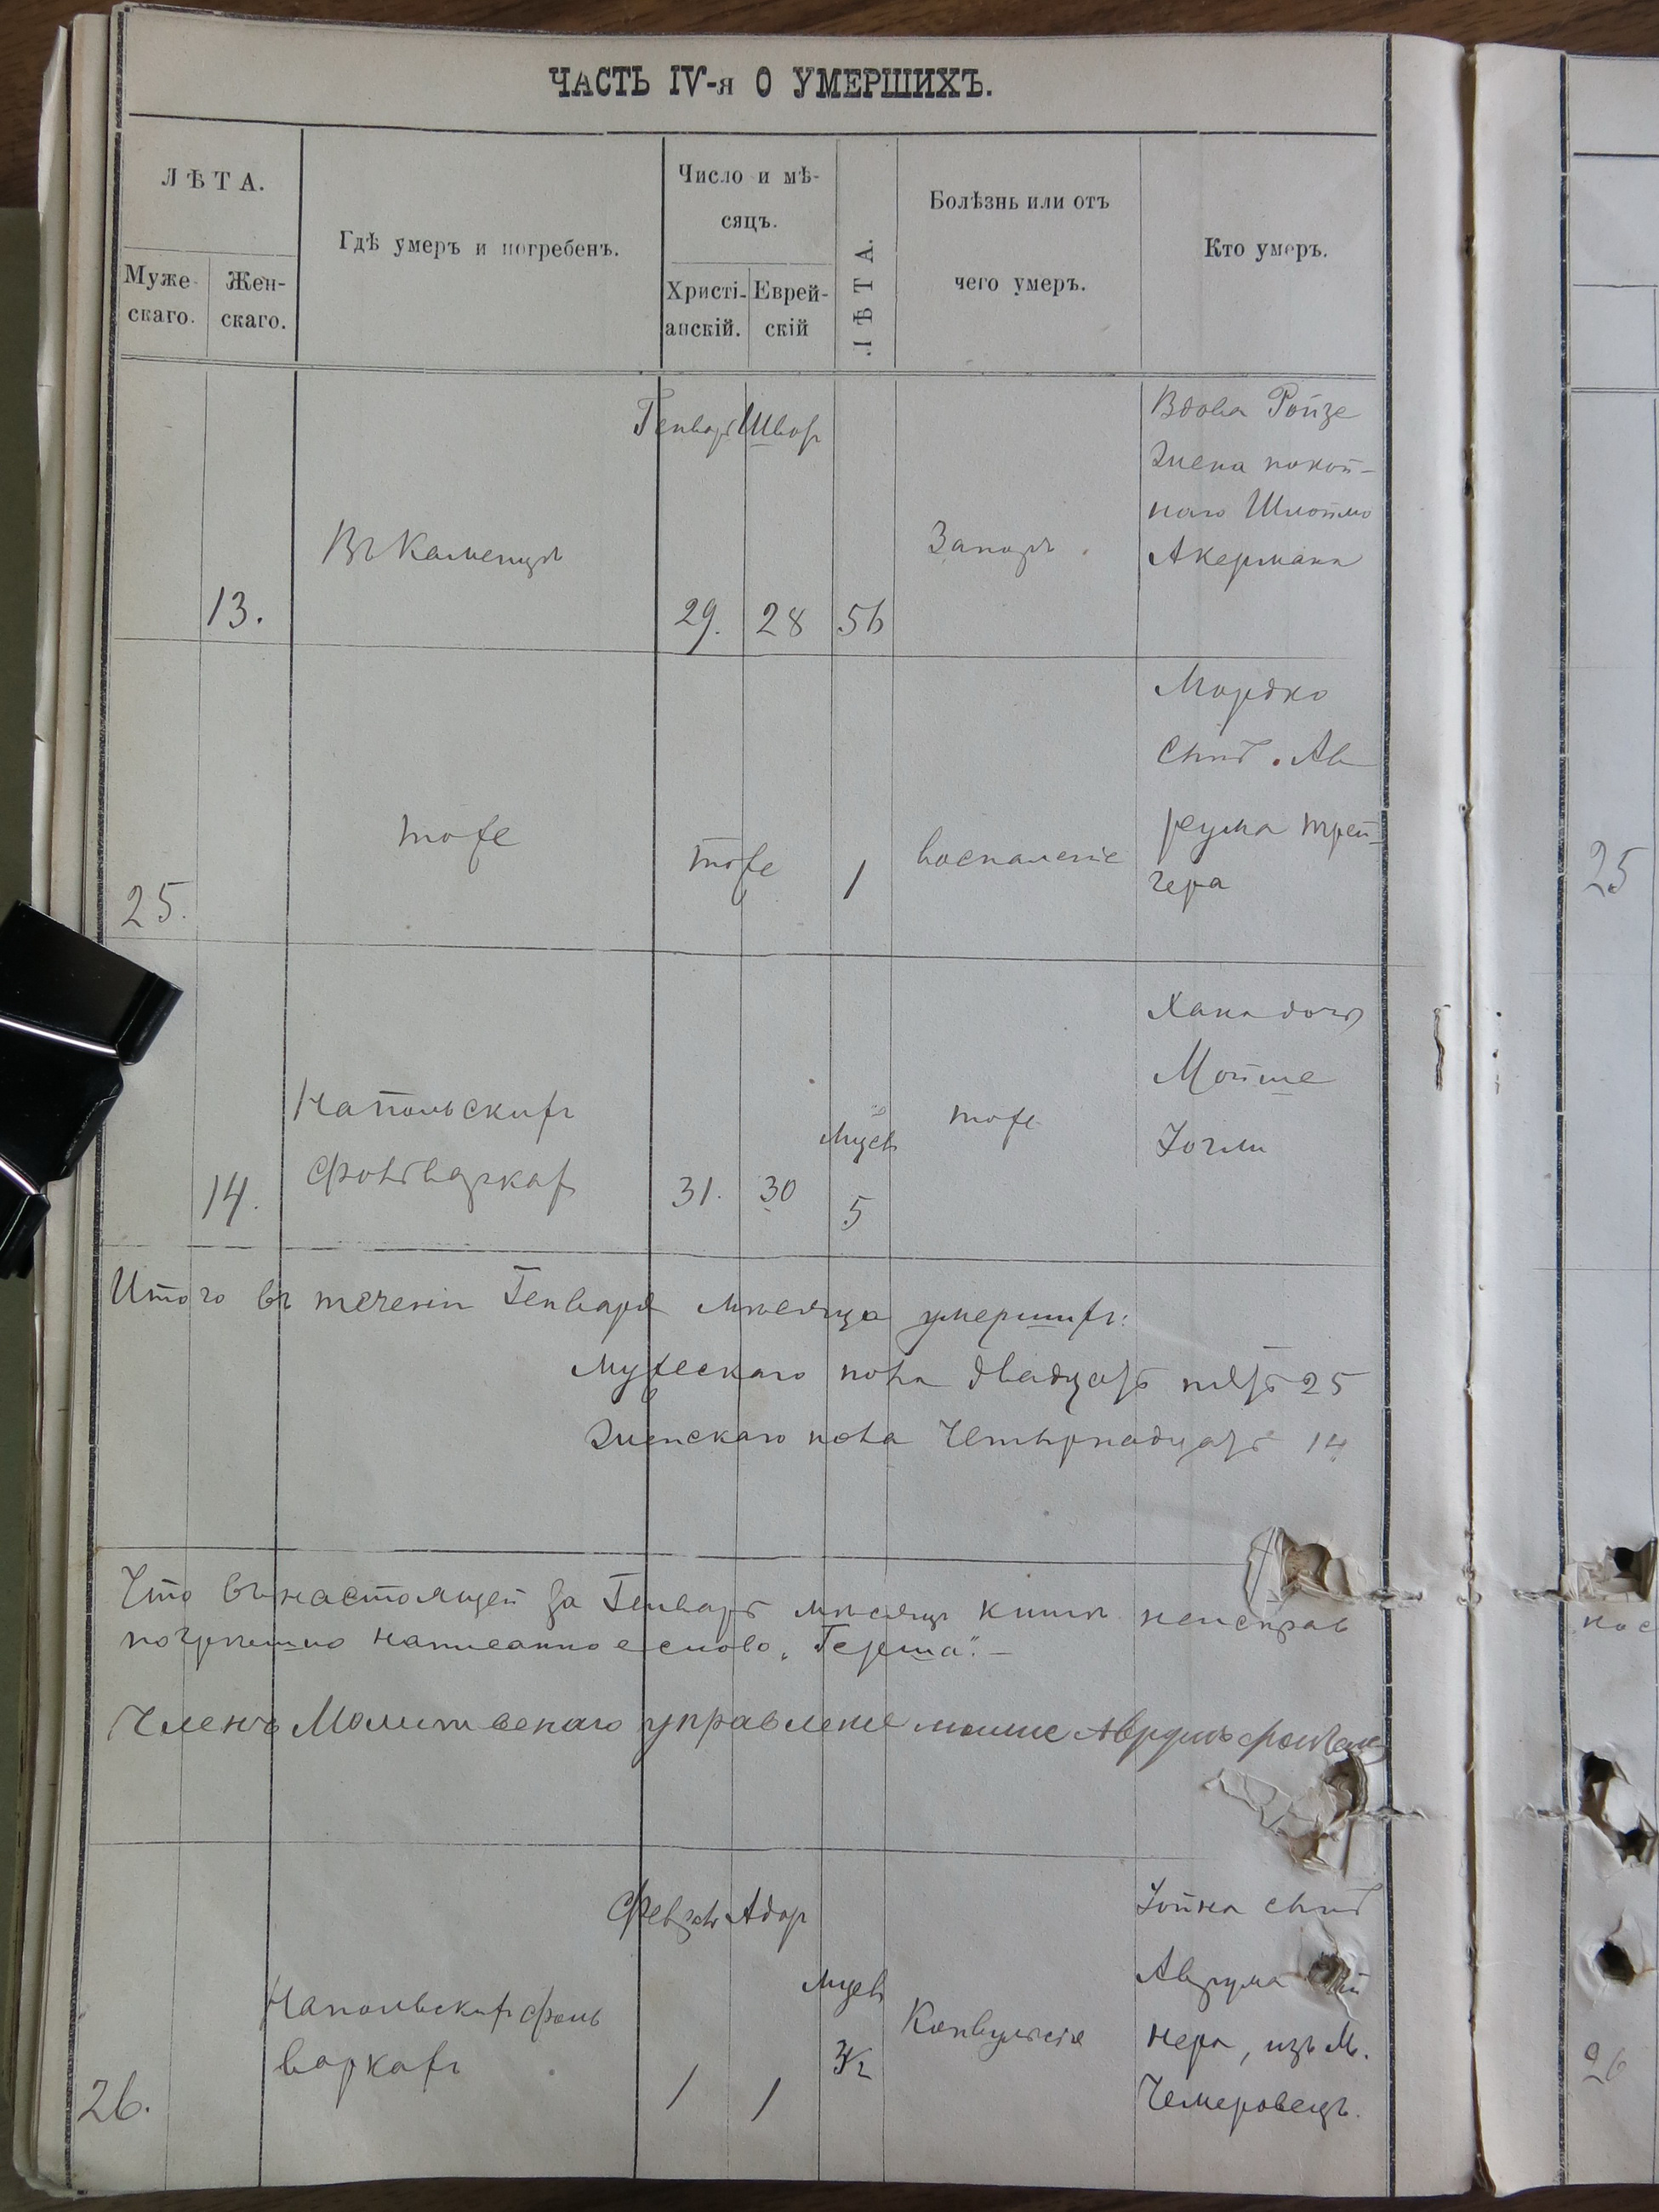 ЧАСТЬ IV-я О УМЕРШИХЪ.
ЛѢТА.
Муже-
скаго.
Жен-
скаго.
Гдѣ умеръ и погребенъ.
Число и мѣ-
сяцъ.
Христі-
анскій.
Еврей-
скій
ЛѢТА.
Болѣзнь или отъ
чего умеръ.
Кто умеръ.
Генварь Шват
13.
Въ Каменцѣ
29.
28
56
Запоръ.
Вдова Ройзе
Жена покой-
наго Шлоймо
Акермана
25.
тоже
тоже
1
воспаленіе
Мордко
сынъ Ав
рума Трей-
гера
14.
На польскихъ
фольваркахъ
31.
30
Мцев
5
тоже
Хана дочь
Мойше
Итого въ теченіи Генваря мѣсяца умершихъ:
Мужескаго пола двадцать пять 25
Женскаго пола Четырнадцать 14
Что въ настоящей за Генварь мѣсяцъ книгѣ неисправ
погрѣшно написанное слово „Герша“. —
Членъ Молитвенаго управления мошке Аврумъ
Феврал Адар
26.
На польскихъ фоль
варкахъ
1
1
Мцев
Конвульсія
Іойна сынъ
Аврума
нера, изъ М.
Чемеровецъ.
25
26